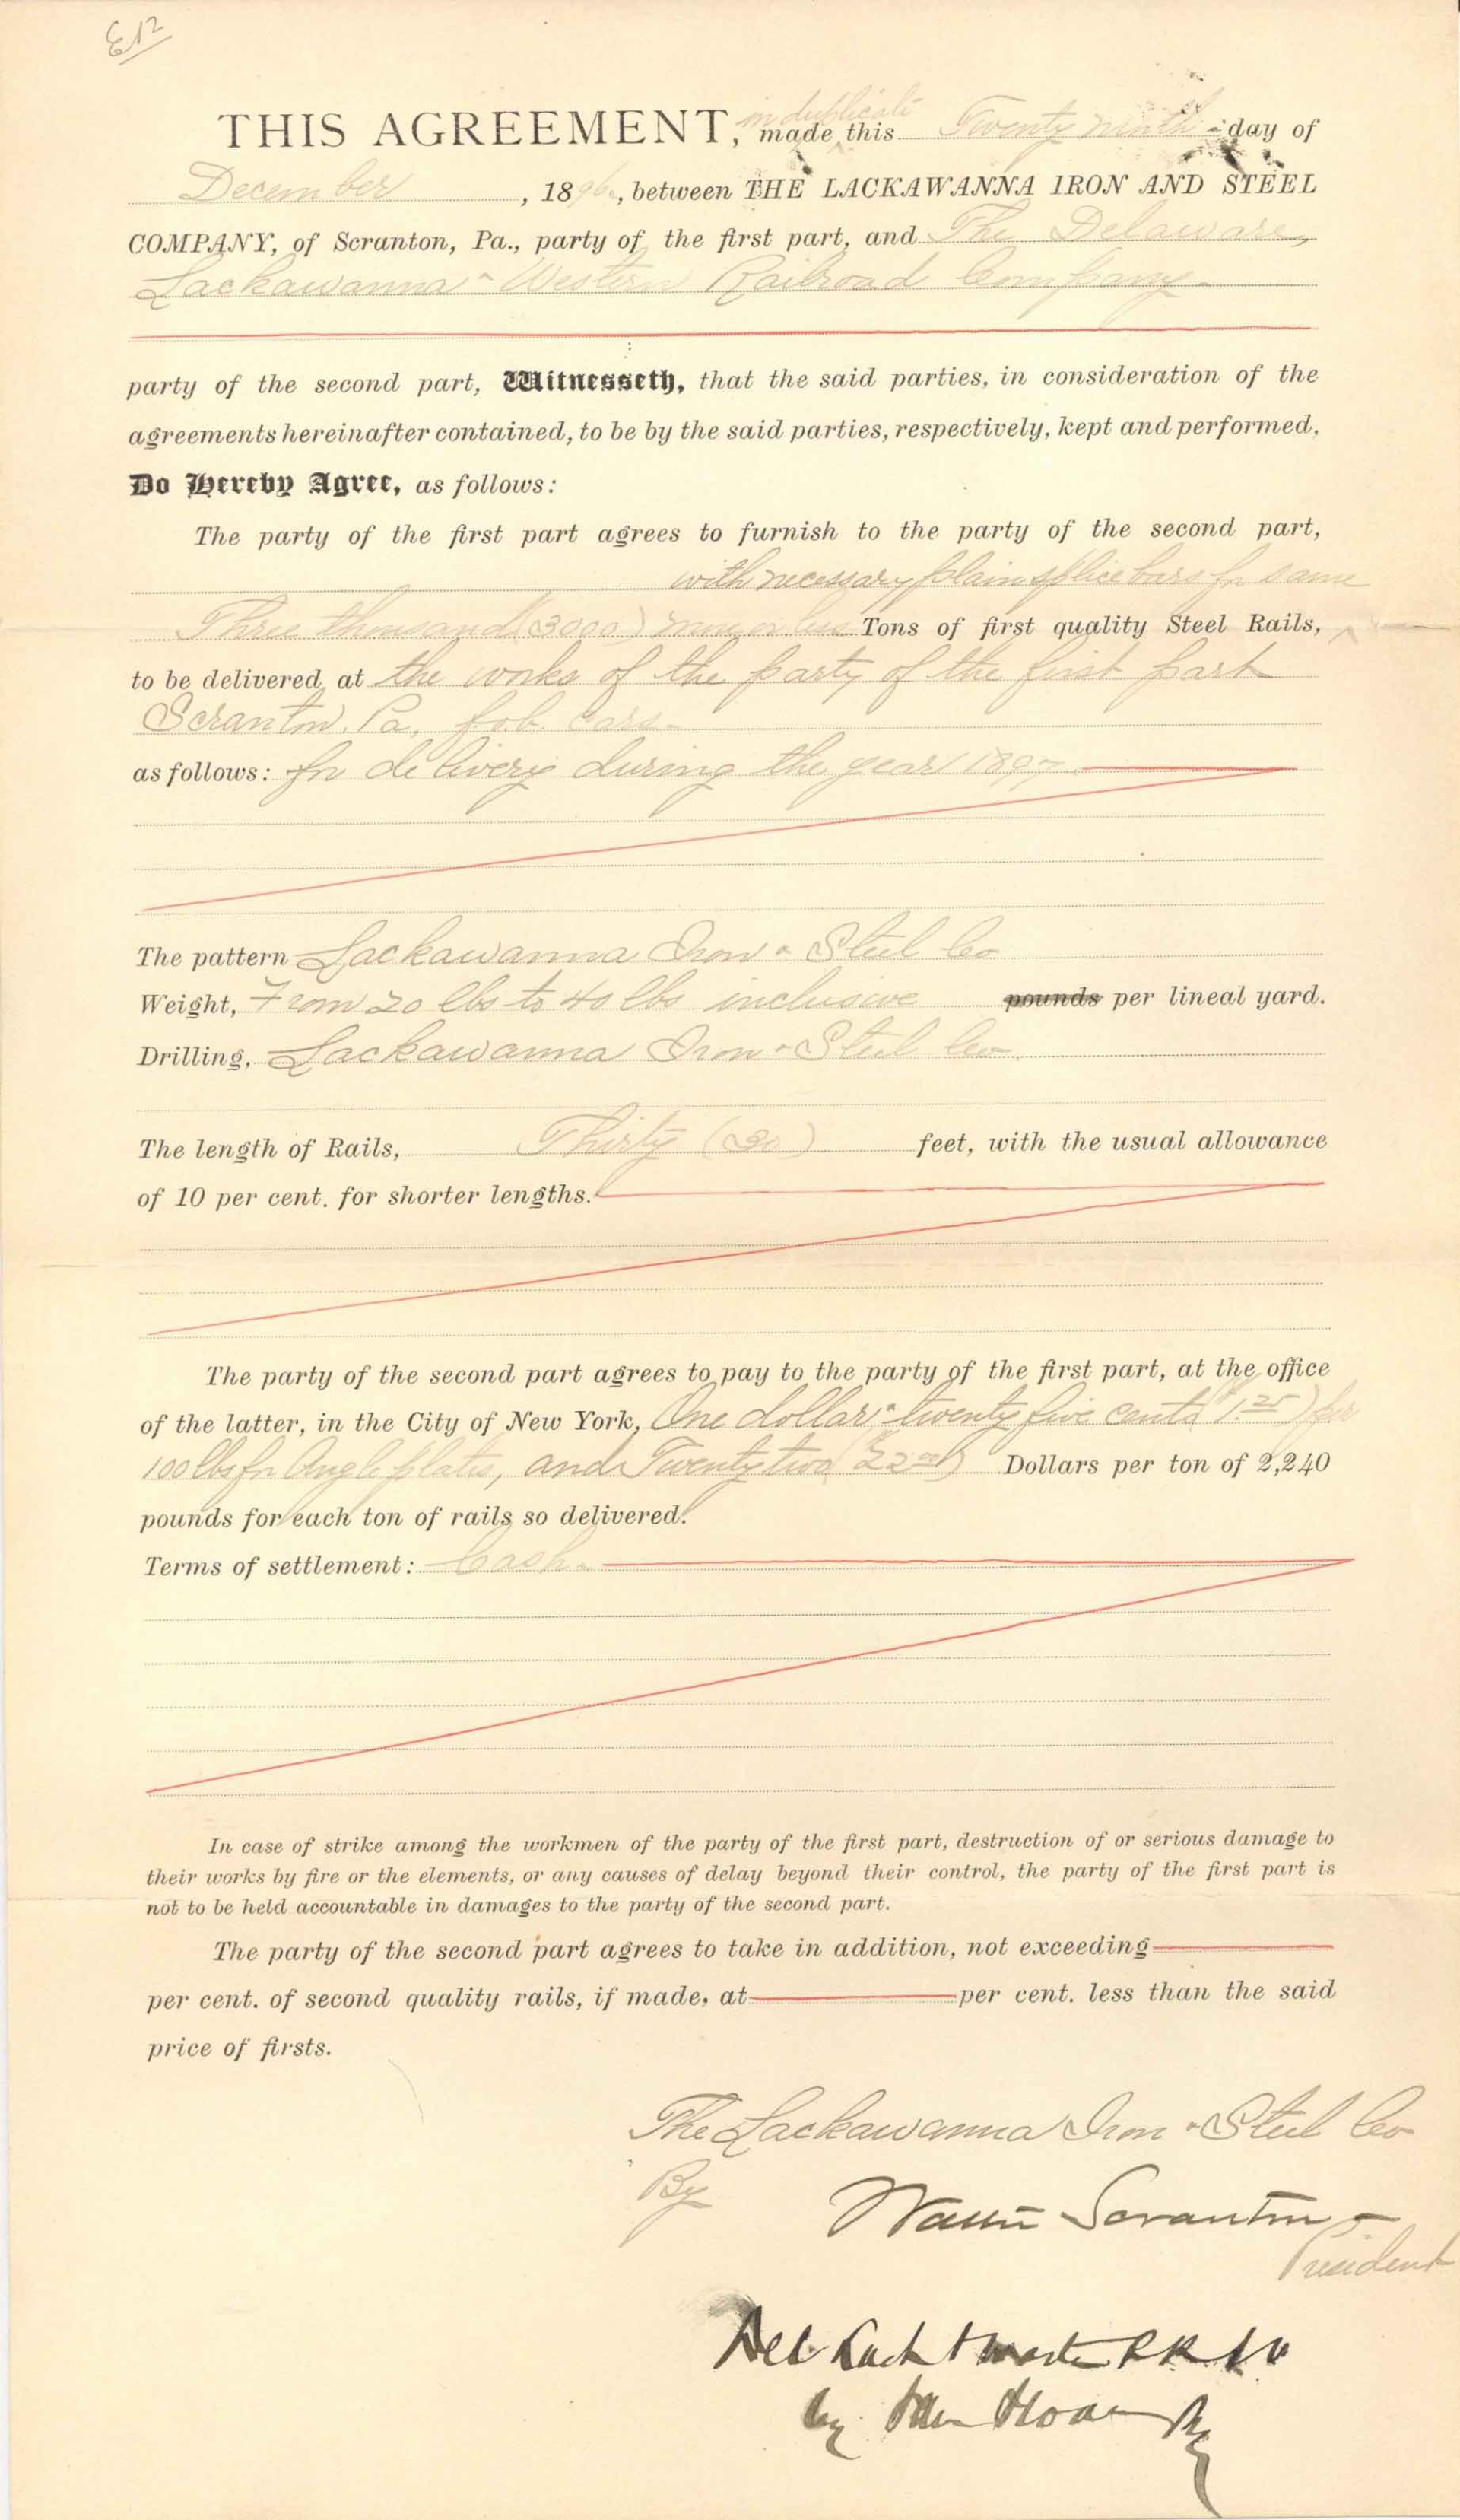 E12
in duplicate
THIS AGREEMENT, made this Twenty ninth day of
December, 1896, between THE LACKAWANNA IRON AND STEEL
COMPANY, of Scranton, Pa., party of the first part, and The Delaware,
Lackawanna & Western Railroad Company.
party of the second part, Witnesseth, that the said parties, in consideration of the
agreements hereinafter contained, to be by the said parties, respectively, kept and performed,
Do Hereby Agree, as follows:
The party of the first part agrees to furnish to the party of the second part,
with necessary plain splice bars for same
Three thousand (3000) more or less Tons of first quality Steel Rails,
to be delivered at the works of the party of the first part
Scranton, Pa, f.o.b. cars.
as follows: for delivery during the year 1897
The pattern Lackawanna Iron & Steel Co
Weight, From 20 lbs to 40 lbs inclusive pounds per lineal yard.
Drilling, Lackawanna Iron & Steel Co.
The length of Rails, Thirty (30) feet, with the usual allowance
of 10 per cent. for shorter lengths.
The party of the second part agrees to pay to the party of the first part, at the office
of the latter, in the City of New York, One dollar & twenty five cents ($1.25) per
100 lbs for Angle plates, and Twenty two (22 00) Dollars per ton of 2,240
pounds for each ton of rails so delivered.
Terms of settlement: Cash.
In case of strike among the workmen of the party of the first part, destruction of or serious damage to
their works by fire or the elements, or any causes of delay beyond their control, the party of the first part is
not to be held accountable in damages to the party of the second part.
The party of the second part agrees to take in addition, not exceeding
per cent. of second quality rails, if made, at per cent. less than the said
price of firsts.
The Lackawanna Iron & Steel Co
By Walter Scranton
President
Del. Lack & West RR Co
by